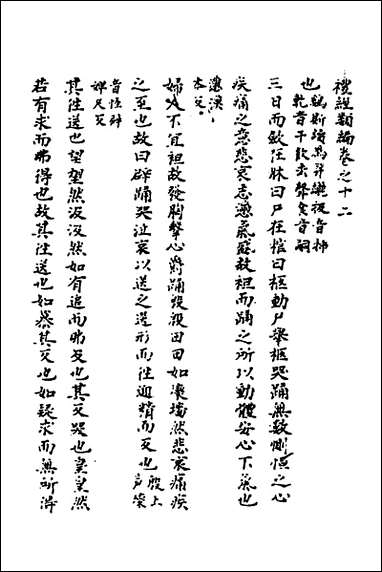 禮經類編卷之十二
也
鷄斯讀爲笄纚扱音揷
乾音干飲去聲食音嗣
三日而斂在牀曰尸在棺曰柩動尸舉柩哭踊無數惻怛之心
疾痛之意悲哀志懣氣盛故袒而踊之所以動體安心下氣也
本反
婦人不宜袒故發胸擊心爵踊殷殷田田如壞墻然悲哀痛疾
之至也故曰辟踊哭泣哀以送之送形而往迎精而反也
殷上
婢尺反
其往送也望望然汲汲然如有追而弗及也其反哭也皇皇然
若有求而弗得也故其往送也如慕其反也如疑求而無所得